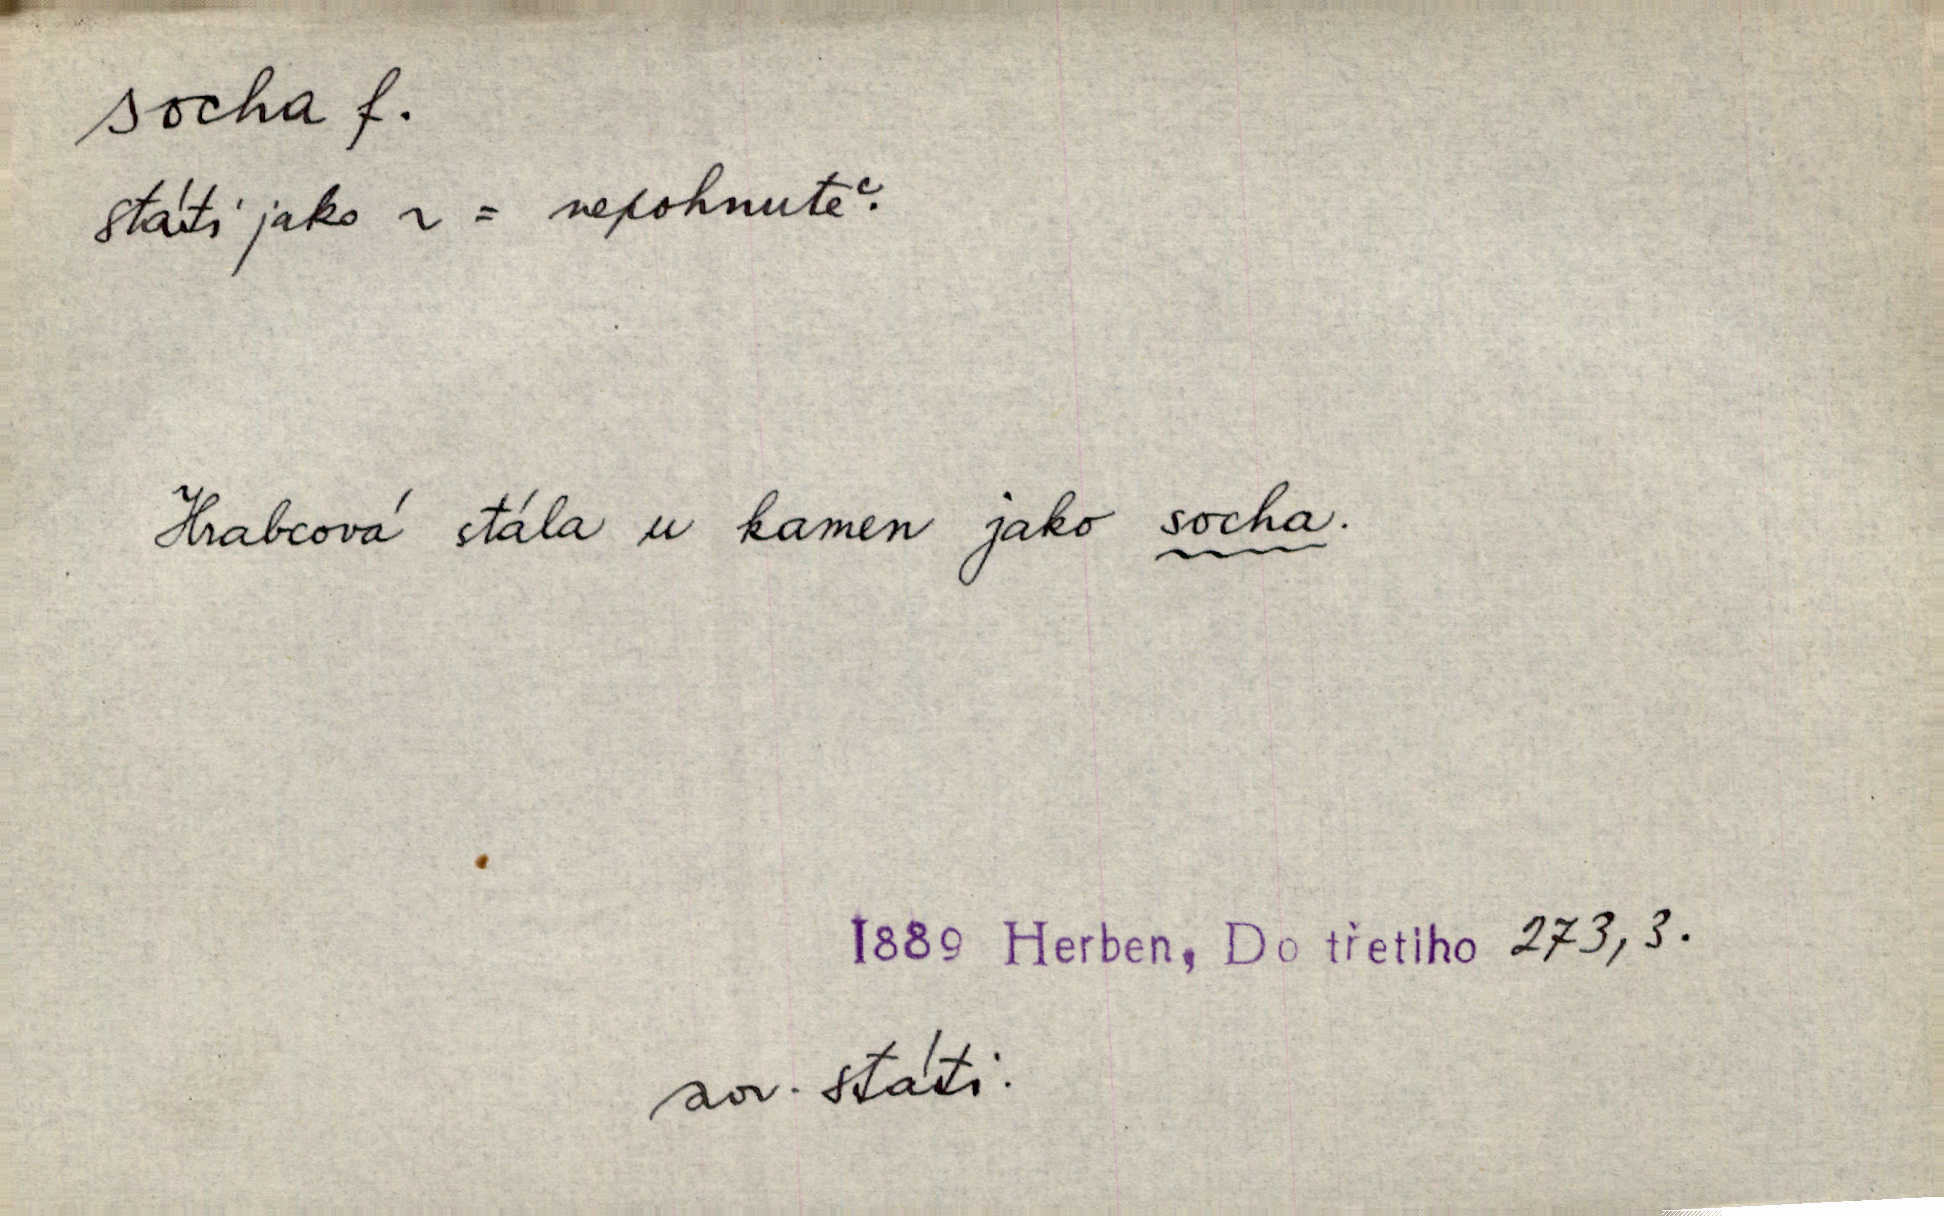 socha f.
státi jako ~ = nepohnutě.
Hrabcová stála u kamen jako socha.
1889 Herben, Do třetiho 273,3.
sov. státi.